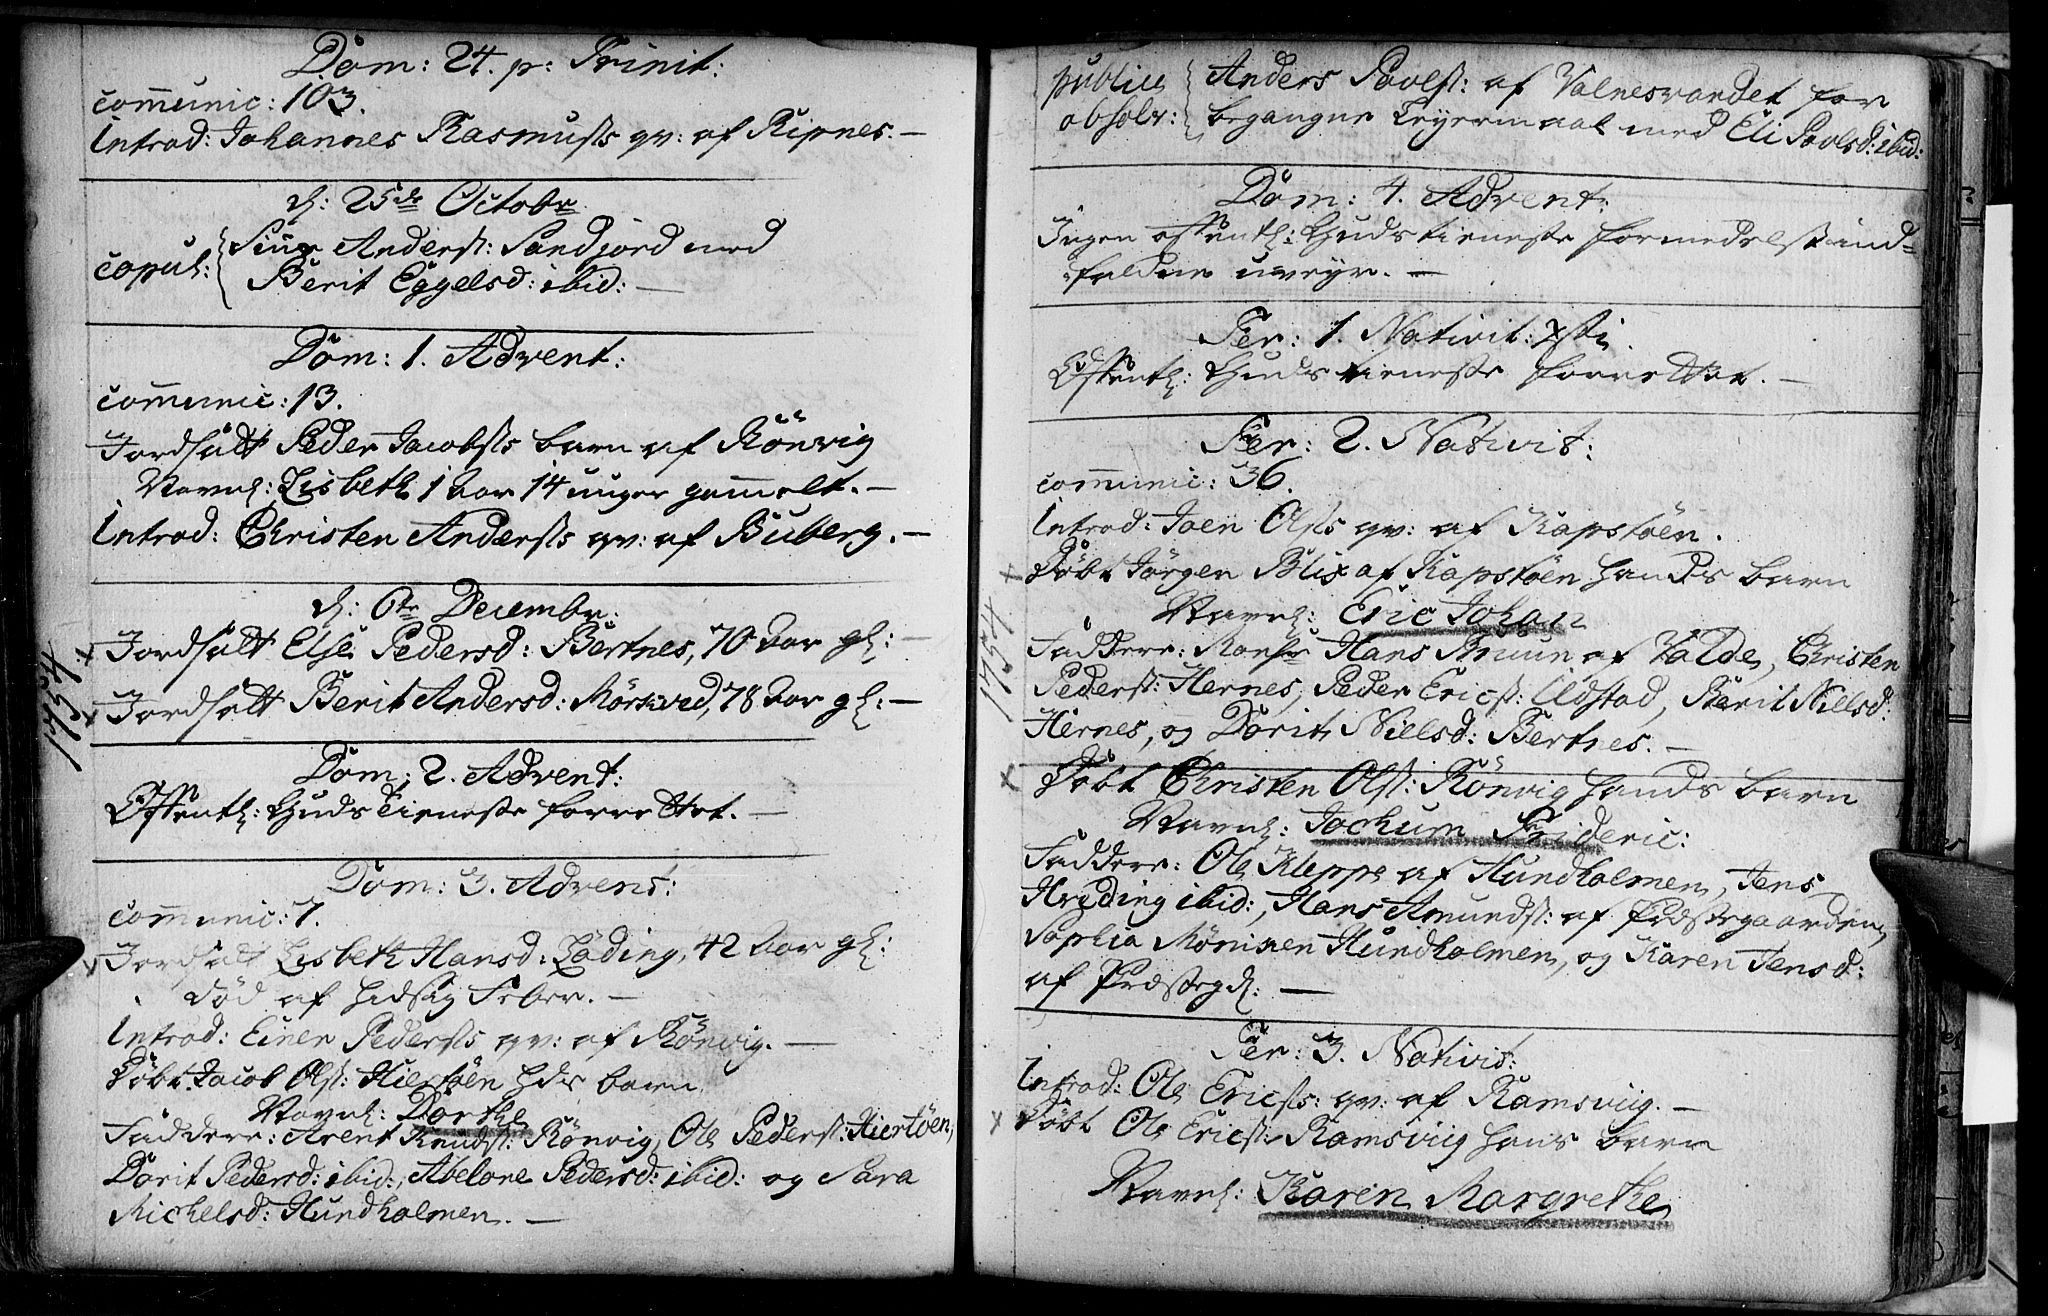 Dom: 24. p: Trinit:
communic: 103.
Introd: Johannes Rasmuss̃s qv: af Ripnes. —
d: 25de Octobr
copul: Siur Anderss̃: Sandjord med
Berit Eggelsd: ibid: —
Dom: 1. Advent:
communic: 13.
Jordfæstt Peder Jacobss̃s barn af Rönvig
Navnl: Lisbeth 1 Aar 14 uuger gammelt. —
Introd: Christen Anderss̃s qv: af Buberg. —
d: 6te Decembr:
Jordfæstt Else Pedersd: Bertnes, 70 Aar gl: —
Jordfæstt Berit Andersd: Mörkved, 78 Aar gl: —
1754
Dom: 2. Advent:
Offentl: Guds Tieneste forrettet. —
Dom: 3. Advent:
communic: 7.
Jordfæstt Lisbeth Hansd: Löding, 42 Aar gl:
död af hidsig Feber. —
Introd: Einer Pederss̃s qv: af Rönvig. —
Döbt Jacob Olss̃: Hiertöen hds barn
Navnl: Dorthe
Faddere: Arent Knudss̃: Rönvig, Ole Pederss̃: Hiertöen,
Dorit Pedersd: ibid:, Abelone Pedersd: ibid: og Sara
Michelsd: Hundholmen. —
publice Anders Povelss̃: af Valnesvandet for
absolv: begangne Leyermaal med Eli Povelsd: ibid:
Dom: 4. Advent:
Ingen offentl: Guds tieneste formedelst ind-
faldne uveyr. —
Fer: 1. Nativit: Xsti
Offentl: Guds tieneste forrettet. —
Fer: 2. Nativit:
communic: 36.
Introd: Joen Olss̃s qv: af Kapstöen.
Döbt Jörgen Blix af Kapstöen hands barn
Navnl: Eric Johan
1754
Faddere: Monsr Hans Bruun af Valde, Christen
Pederss̃: Hernes, Peder Ericss̃: Ildstad, Berit Nillsd:
Hernes, og Dorit Nielsd: Bertnes. —
Döbt Christen Olss̃: Rönvig hands barn
Navnl: Jochum Frideric:
Faddere: Ole Kleppe af Hundholmen, Jens
Hveding ibid:, Hans Amundss̃: af Præstegaarden,
Sophia Mönixen Hundholmen, og Karen Jensd:
af Præstegd: —
Fer: 3. Nativit:
Introd: Ole Ericss̃s: qv: af Ramsviig. —
Döbt Ole Ericss̃: Ramsviig hans barn
Navnl: Karen Margrethe